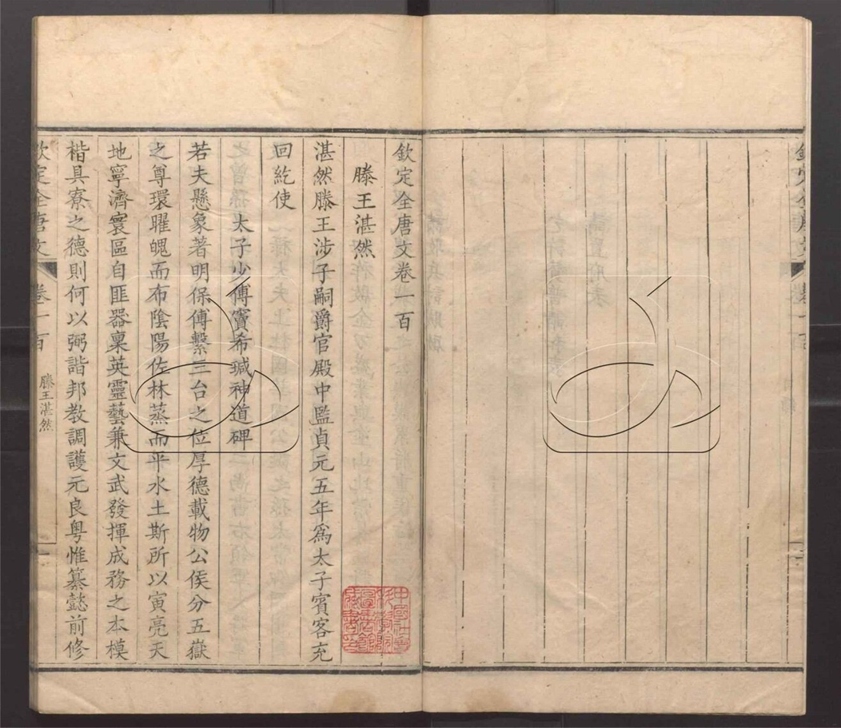 欽定全唐文卷一百
滕王湛然
湛然滕王涉子嗣爵官殿中監貞元五年爲太子賓客充
回紇使
太子少傅竇希瑊神道碑
若夫懸象著明保傅繫三台之位厚德載物公侯分五嶽
之尊環曜魄而布陰陽佐林蒸而平水土斯所以寅亮天
地寧濟寰區自匪器稟英靈藝兼文武發揮成務之本模
楷具寮之德則何以弼諧邦教調護元良粤惟纂懿前修
欽定全唐文
卷一百
滕王湛然